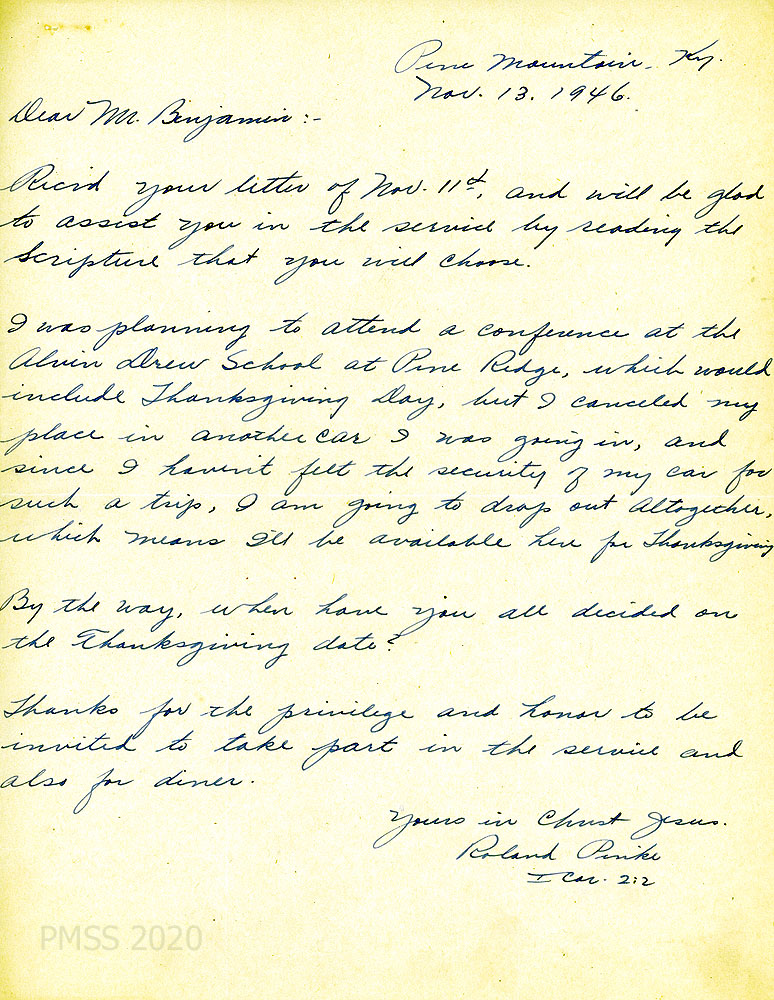 Pine Mountain, Ky.
Nov. 13. 1946.
Dear Mr. Benjamin:-
Rec'd your letter of Nov. 11th, and will be glad
to assist you in the service by reading the
Scripture that you will choose.
I was planning to attend a conference at the
Alvin Drew School at Pine Ridge, which would
include Thanksgiving Day, but I canceled my
place in another car I was going in, and
since I haven't felt the security of my car for
such a trip, I am going to drop out altogether,
which means I'll be available here for Thanksgiving
By the way, when have you all decided on
the Thanksgiving date?
Thanks for the privilege and honor to be
invited to take part in the service and
also for diner.
Yours in Christ Jesus.
Roland
I Cor. 2:2
PMSS 2020